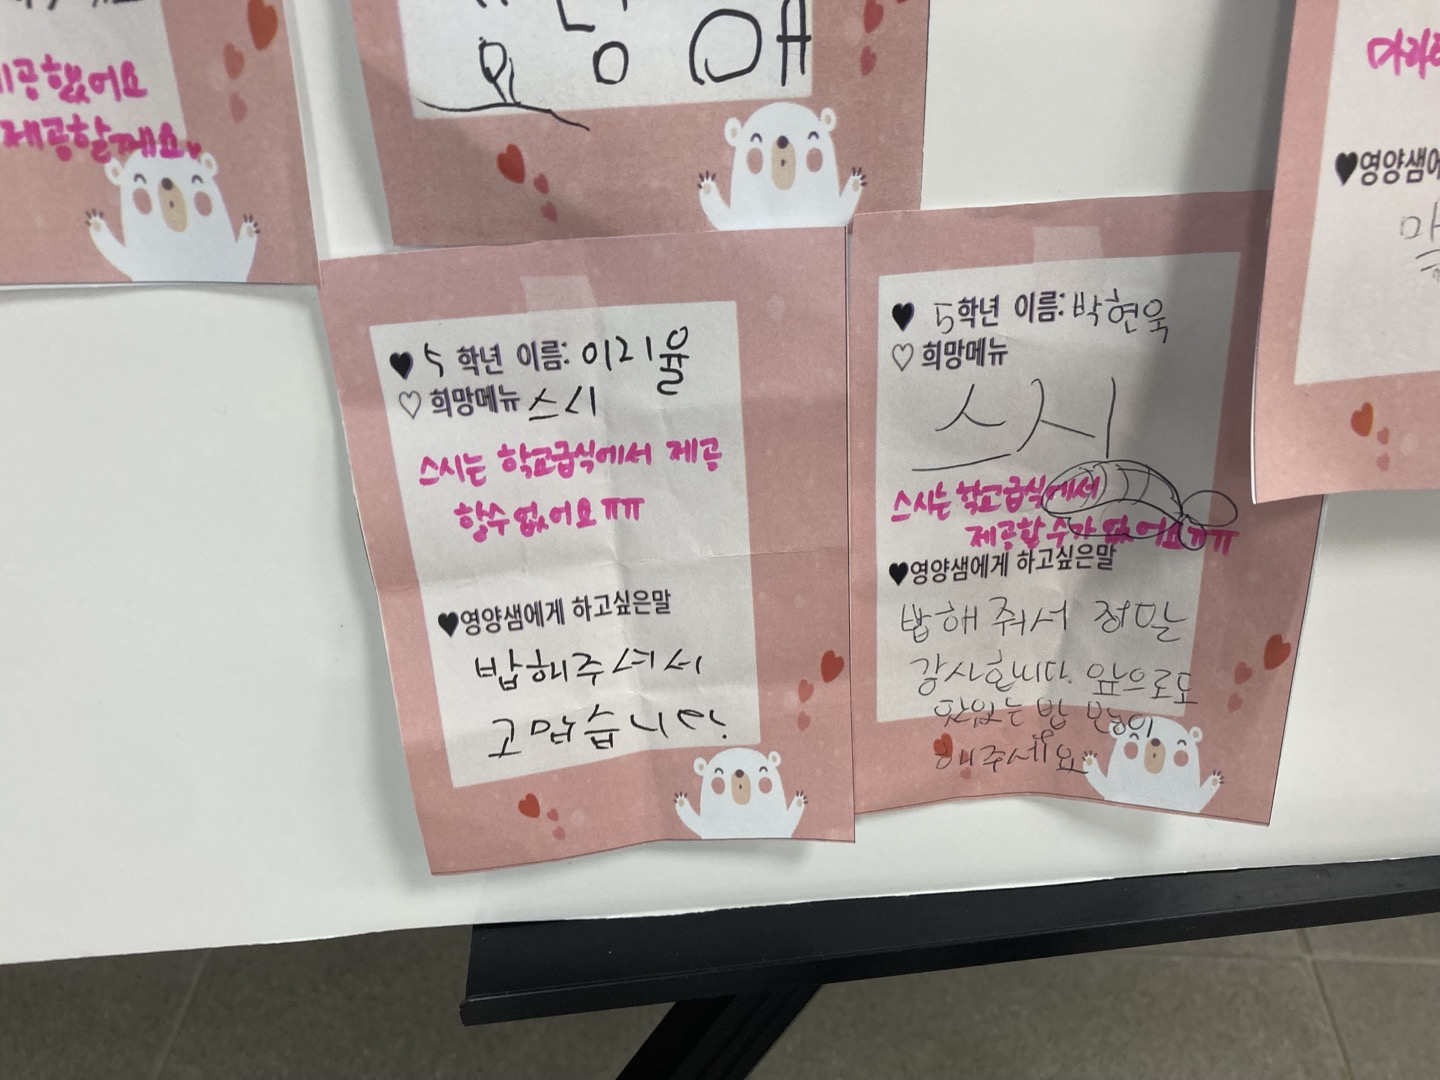 제공했어요
제공할게요
용
애
♥ 5 학년 이름: 이리율
♡ 희망메뉴 스시
스시는 학교급식에서 제공
할수 없어요 ㅠㅠ
♥영양샘에게 하고싶은말
밥해주셔서
고맙습니다.
♥ 5학년 이름: 박현욱
♡ 희망메뉴
스시
스시는 학교급식에서
제공할 수가 없어요 ㅠㅠ
♥영양샘에게 하고싶은말
밥해 줘서 정말
감사합니다. 앞으로도
맛있는 밥 많이
해주세요
마라
♥영양샘에